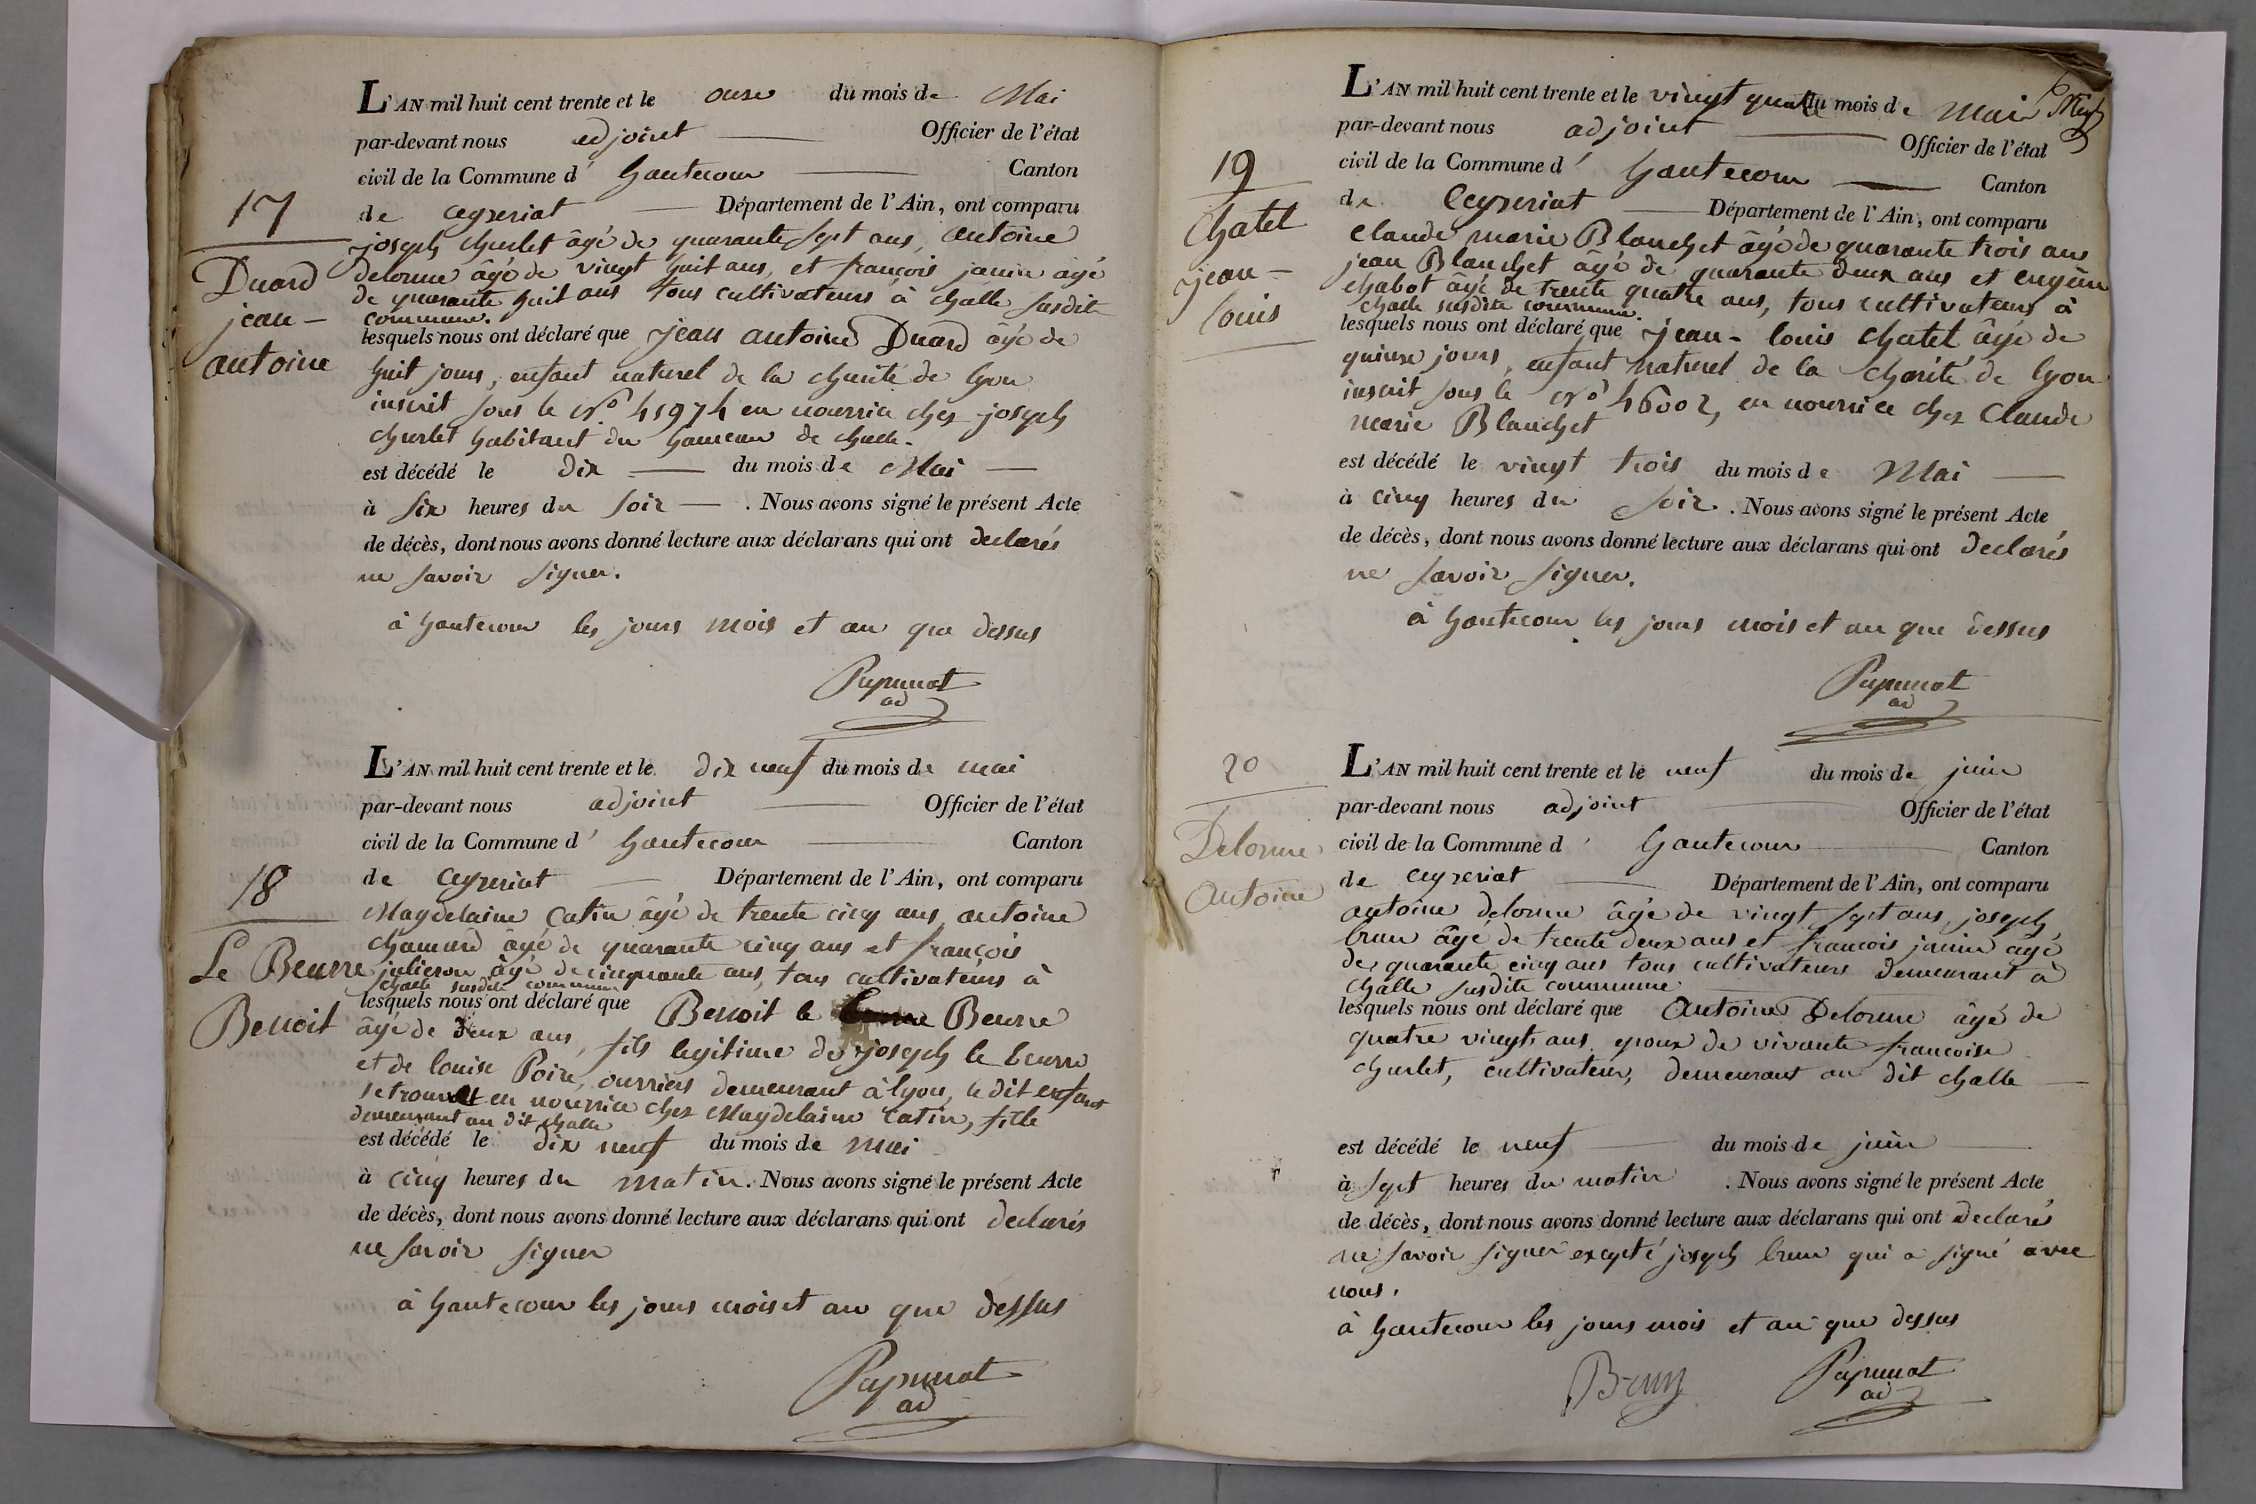 L'AN mil huit cent trente et le onze du mois de Mai
par-devant nous adjoint Officier de l'état
civil de la Commune d' hautecour Canton
de ceyzeriat Département de l'Ain, ont comparu
17
joseph churlet âgé de quarante sept ans, antoine
delorme âgé de vingt huit ans, et françois janin âgé
de quarante huit ans tous cultivateurs à challe susdite
commune.
Duard
jean -
antoine
lesquels nous ont déclaré que jean antoine Duard âgé de
huit jours, enfant naturel de la charité de lyon
inscrit sous le No. 45974 en nourrice chez joseph
churlet habitant du hameau de challe.
est décédé le dix du mois de Mai
à six heures du soir . Nous avons signé le présent Acte
de décès, dont nous avons donné lecture aux déclarans qui ont declarés
ne savoir signer.
à hautecour les jours mois et an que dessus
ad
L'AN mil huit cent trente et le dix neuf du mois de mai
par-devant nous adjoint Officier de l'état
civil de la Commune d' hautecour Canton
de ceyzeriat Département de l'Ain, ont comparu
18
Magdelaine Catin âgé de trente cinq ans, antoine
chanard âgé de quarante cinq ans et françois
julieron âgé de cinquante ans, tous cultivateurs à
challe susdite commune
Le Beurre
Benoit
lesquels nous ont déclaré que Benoit le Beurre
âgé de deux ans, fils legitime de joseph le beurre
et de louise Poire, ouvriers demeurant à lyon, le dit enfant
se trouvet en nourrice chez Magdelaine Catin, fille
demeurant au dit challe
est décédé le dix neuf du mois de mai
à cinq heures du matin. Nous avons signé le présent Acte
de décès, dont nous avons donné lecture aux déclarans qui ont declarés
ne savoir signer
à hautecour les jours mois et an que dessus
ad
L'AN mil huit cent trente et le vingt quatre du mois de Mai
par-devant nous adjoint Officier de l'état
civil de la Commune d' hautecour Canton
de Ceyzeriat Département de l'Ain, ont comparu
19
Chatel
jean -
louis
claude marie Blanchet âgé de quarante trois ans
jean Blanchet âgé de quarante deux ans et eugène
chabot âgé de trente quatre ans, tous cultivateurs à
challe susdite commune.
lesquels nous ont déclaré que jean - louis chatel âgé de
quinze jours, enfant naturel de la charité de lyon
inscrit sous le No 46002, en nourrice chez Claude
marie Blanchet
est décédé le vingt trois du mois de Mai
à cinq heures du soir. . Nous avons signé le présent Acte
de décès, dont nous avons donné lecture aux déclarans qui ont declarés
ne savoir signer.
à hautecour les jours mois et an que dessus
ad
L'AN mil huit cent trente et le neuf du mois de juin
par-devant nous adjoint Officier de l'état
civil de la Commune d' hautecour Canton
de ceyzeriat Département de l'Ain, ont comparu
20
Delorme
Antoine
antoine delorme âgé de vingt sept ans, joseph
brun âgé de trente deux ans et francois janin âgé
de quarante cinq ans tous cultivateurs demeurant à
challe susdite commune
lesquels nous ont déclaré que Antoine Delorme âgé de
quatre vingts ans epoux de vivante francoise
churlet, cultivateur, demeurant au dit challe
est décédé le neuf du mois de juin
à sept heures du matin . Nous avons signé le présent Acte
de décès, dont nous avons donné lecture aux déclarans qui ont declarés
ne savoir signer excepté joseph brun qui a signé avec
nous.
à hautecour les jours mois et an que dessus
Brun
ad